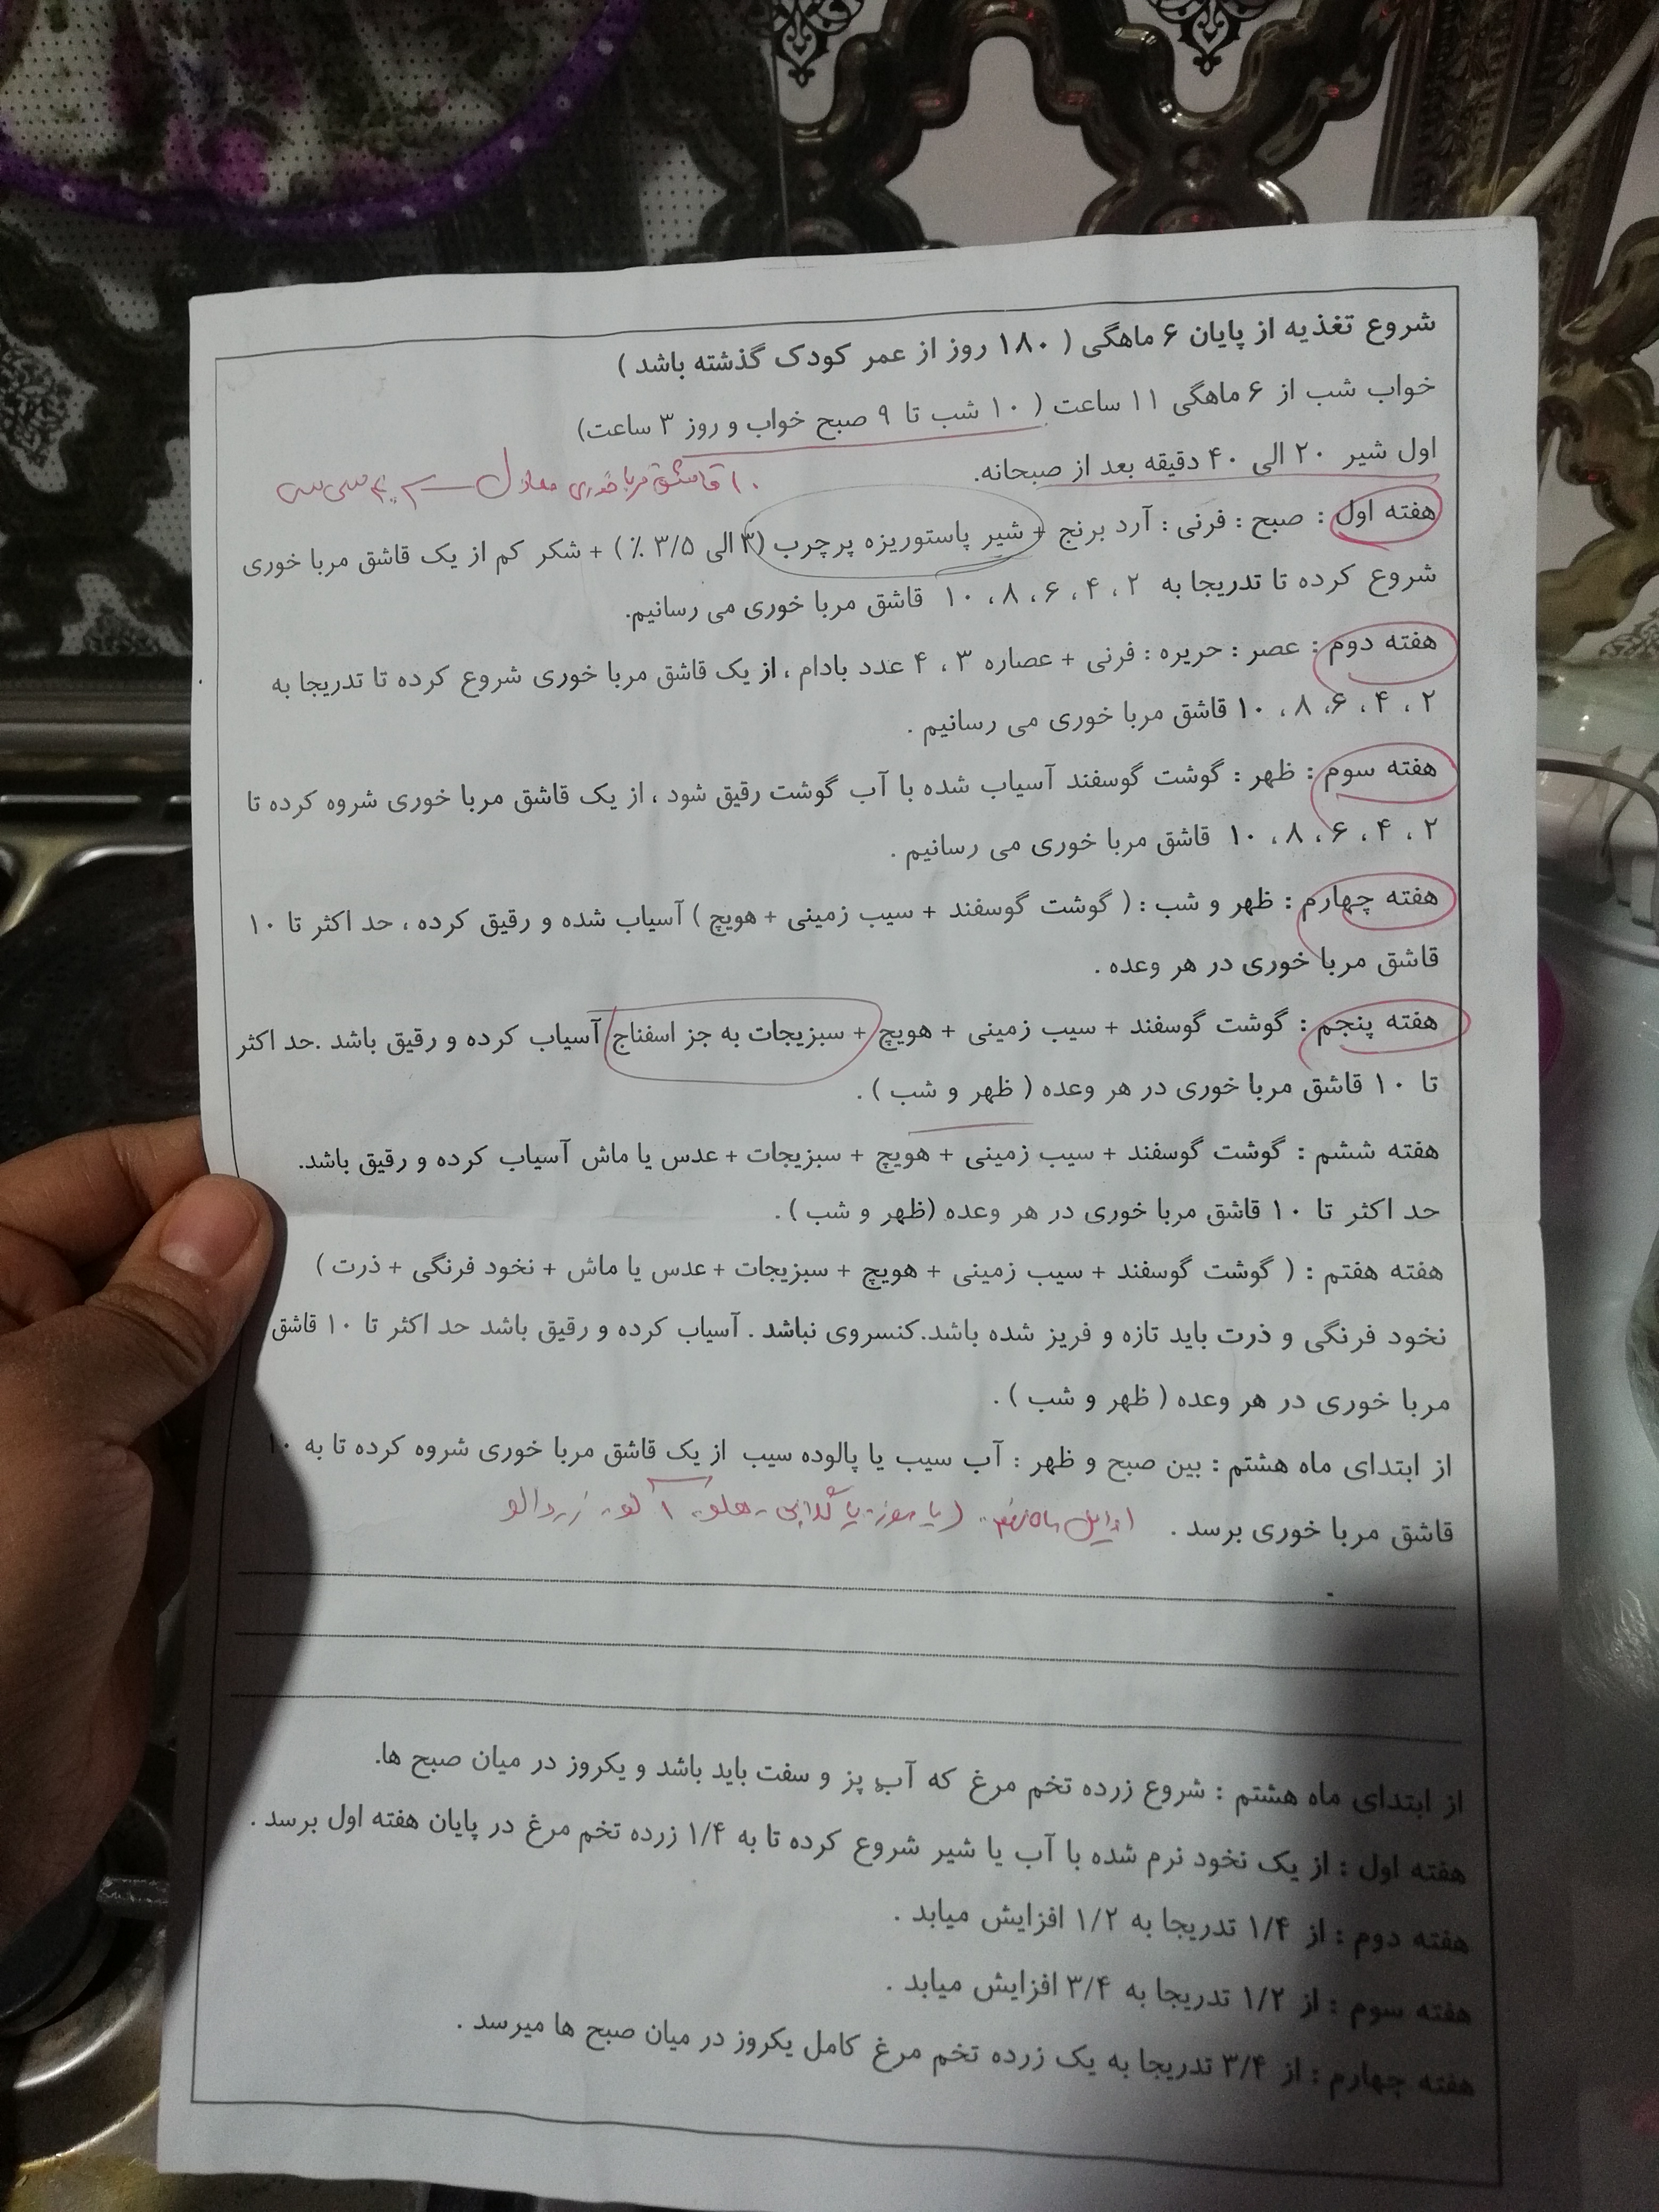 شروع تغذیه از پایان ۶ ماهگی ( ۱۸۰ روز از عمر کودک گذشته باشد )
خواب شب از ۶ ماهگی ۱۱ ساعت ( ۱۰ شب تا ۹ صبح خواب و روز ۳ ساعت)
اول شیر ۲۰ الی ۴۰ دقیقه بعد از صبحانه.
۱۰ قاشق مرباخوری معادل سی سی
هفته اول : صبح : فرنی : آرد برنج + شیر پاستوریزه پرچرب (۳ الی ۳/۵ ٪) + شکر کم از یک قاشق مربا خوری
شروع کرده تا تدریجا به ۲ ، ۴ ، ۶ ، ۸ ، ۱۰ قاشق مربا خوری می رسانیم.
هفته دوم : عصر : حریره : فرنی + عصاره ۳ ، ۴ عدد بادام ، از یک قاشق مربا خوری شروع کرده تا تدریجا به
۲ ، ۴ ، ۶ ، ۸ ، ۱۰ قاشق مربا خوری می رسانیم .
هفته سوم : ظهر : گوشت گوسفند آسیاب شده با آب گوشت رقیق شود ، از یک قاشق مربا خوری شروه کرده تا
۲ ، ۴ ، ۶ ، ۸ ، ۱۰ قاشق مربا خوری می رسانیم .
هفته چهارم : ظهر و شب : ( گوشت گوسفند + سیب زمینی + هویچ ) آسیاب شده و رقیق کرده ، حد اکثر تا ۱۰
قاشق مربا خوری در هر وعده .
هفته پنجم : گوشت گوسفند + سیب زمینی + هویچ + سبزیجات به جز اسفناج آسیاب کرده و رقیق باشد .حد اکثر
تا ۱۰ قاشق مربا خوری در هر وعده ( ظهر و شب ) .
هفته ششم : گوشت گوسفند + سیب زمینی + هویچ + سبزیجات + عدس یا ماش آسیاب کرده و رقیق باشد.
حد اکثر تا ۱۰ قاشق مربا خوری در هر وعده (ظهر و شب ) .
هفته هفتم : ( گوشت گوسفند + سیب زمینی + هویچ + سبزیجات + عدس یا ماش + نخود فرنگی + ذرت )
نخود فرنگی و ذرت باید تازه و فریز شده باشد.کنسروی نباشد . آسیاب کرده و رقیق باشد حد اکثر تا ۱۰ قاشق
مربا خوری در هر وعده ( ظهر و شب ) .
از ابتدای ماه هشتم : بین صبح و ظهر : آب سیب یا پالوده سیب از یک قاشق مربا خوری شروه کرده تا به ۱۰
قاشق مربا خوری برسد . یا موز - یا گلابی - هلو - آلو - زردآلو
از ابتدای ماه هشتم : شروع زرده تخم مرغ که آب پز و سفت باید باشد و یکروز در میان صبح ها.
هفته اول : از یک نخود نرم شده با آب یا شیر شروع کرده تا به ۱/۴ زرده تخم مرغ در پایان هفته اول برسد .
هفته دوم : از ۱/۴ تدریجا به ۱/۲ افزایش میابد .
هفته سوم : از ۱/۲ تدریجا به ۳/۴ افزایش میابد .
هفته چهارم : از ۳/۴ تدریجا به یک زرده تخم مرغ کامل یکروز در میان صبح ها میرسد .